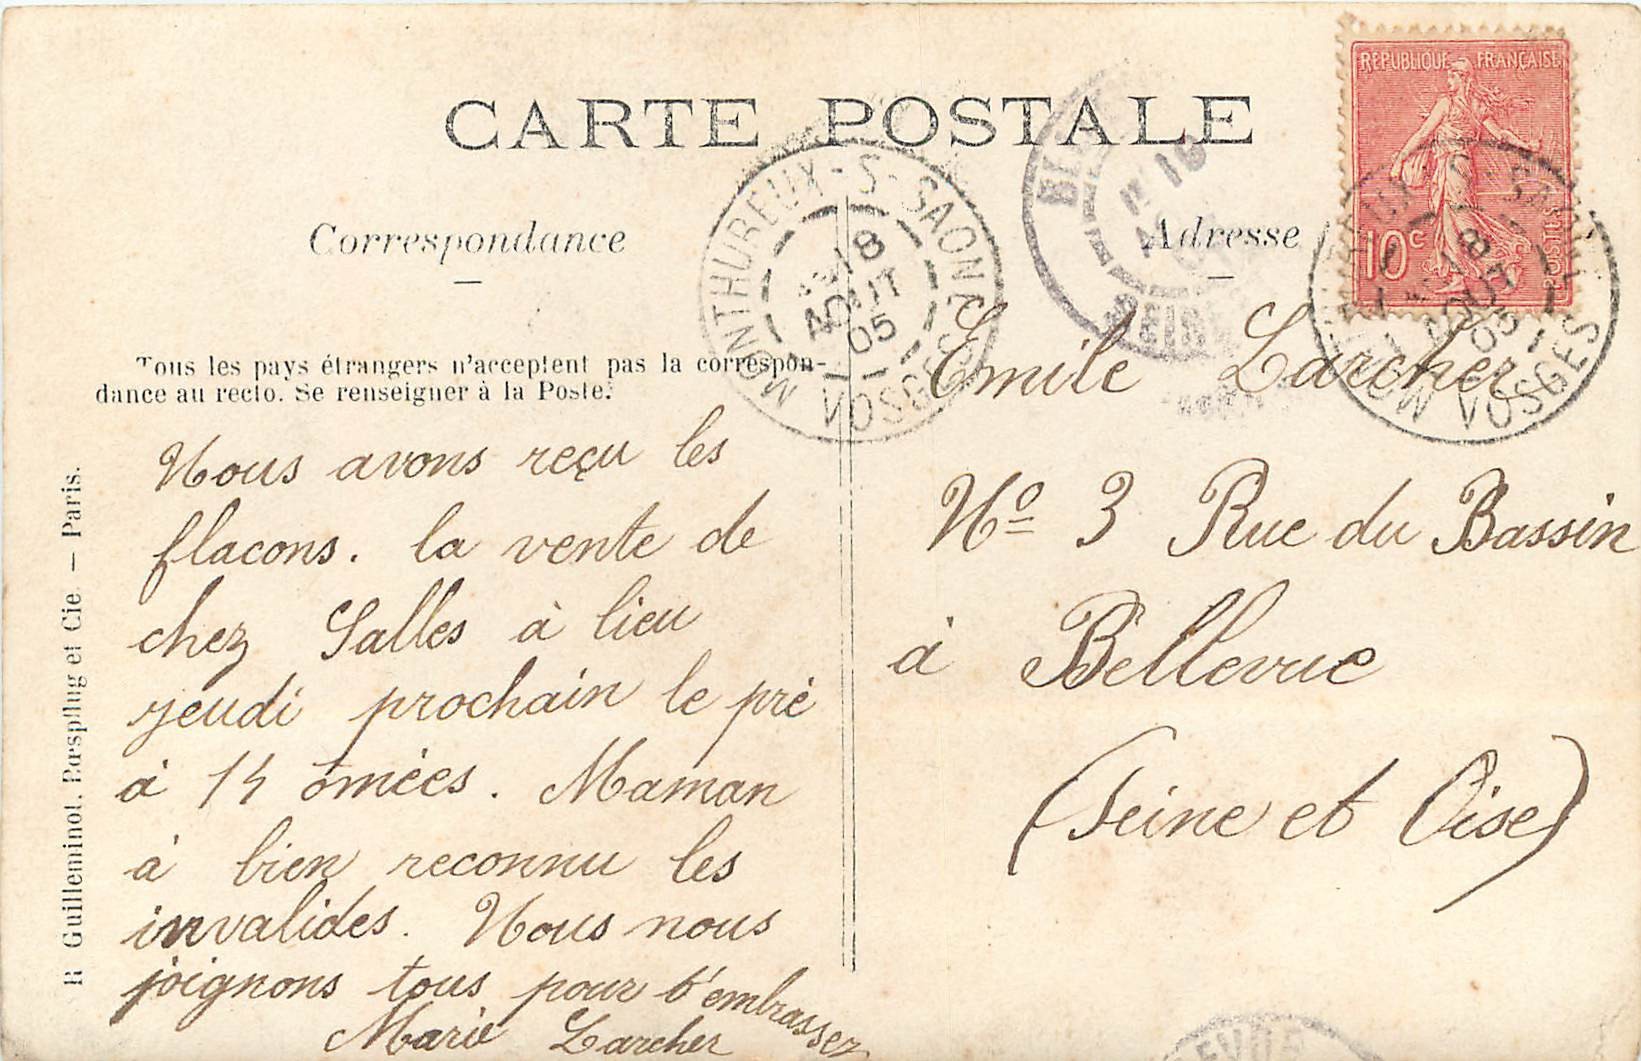 CARTE POSTALE
Correspondance
Adresse
REPUBLIQUE FRANÇAISE
10c
POSTES
MONTHUREUX-S-SAONE
18
AOUT
05
VOSGES
18
AOUT
05
VOSGES
Tous les pays étrangers n'acceptent pas la correspon-
dance au recto. Se renseigner à la Poste.
B. Guilleminot, Bœspflug et Cie — Paris.
Nous avons reçu les
flacons. la vente de
chez Salles à lieu
jeudi prochain le pré
à 14 omées. Maman
à bien reconnu les
invalides. Nous nous
joignons tous pour t'embrassez
Marie Larcher
Emile Larcher
No 3 Rue du Bassin
à Bellevue
(Seine et Oise)